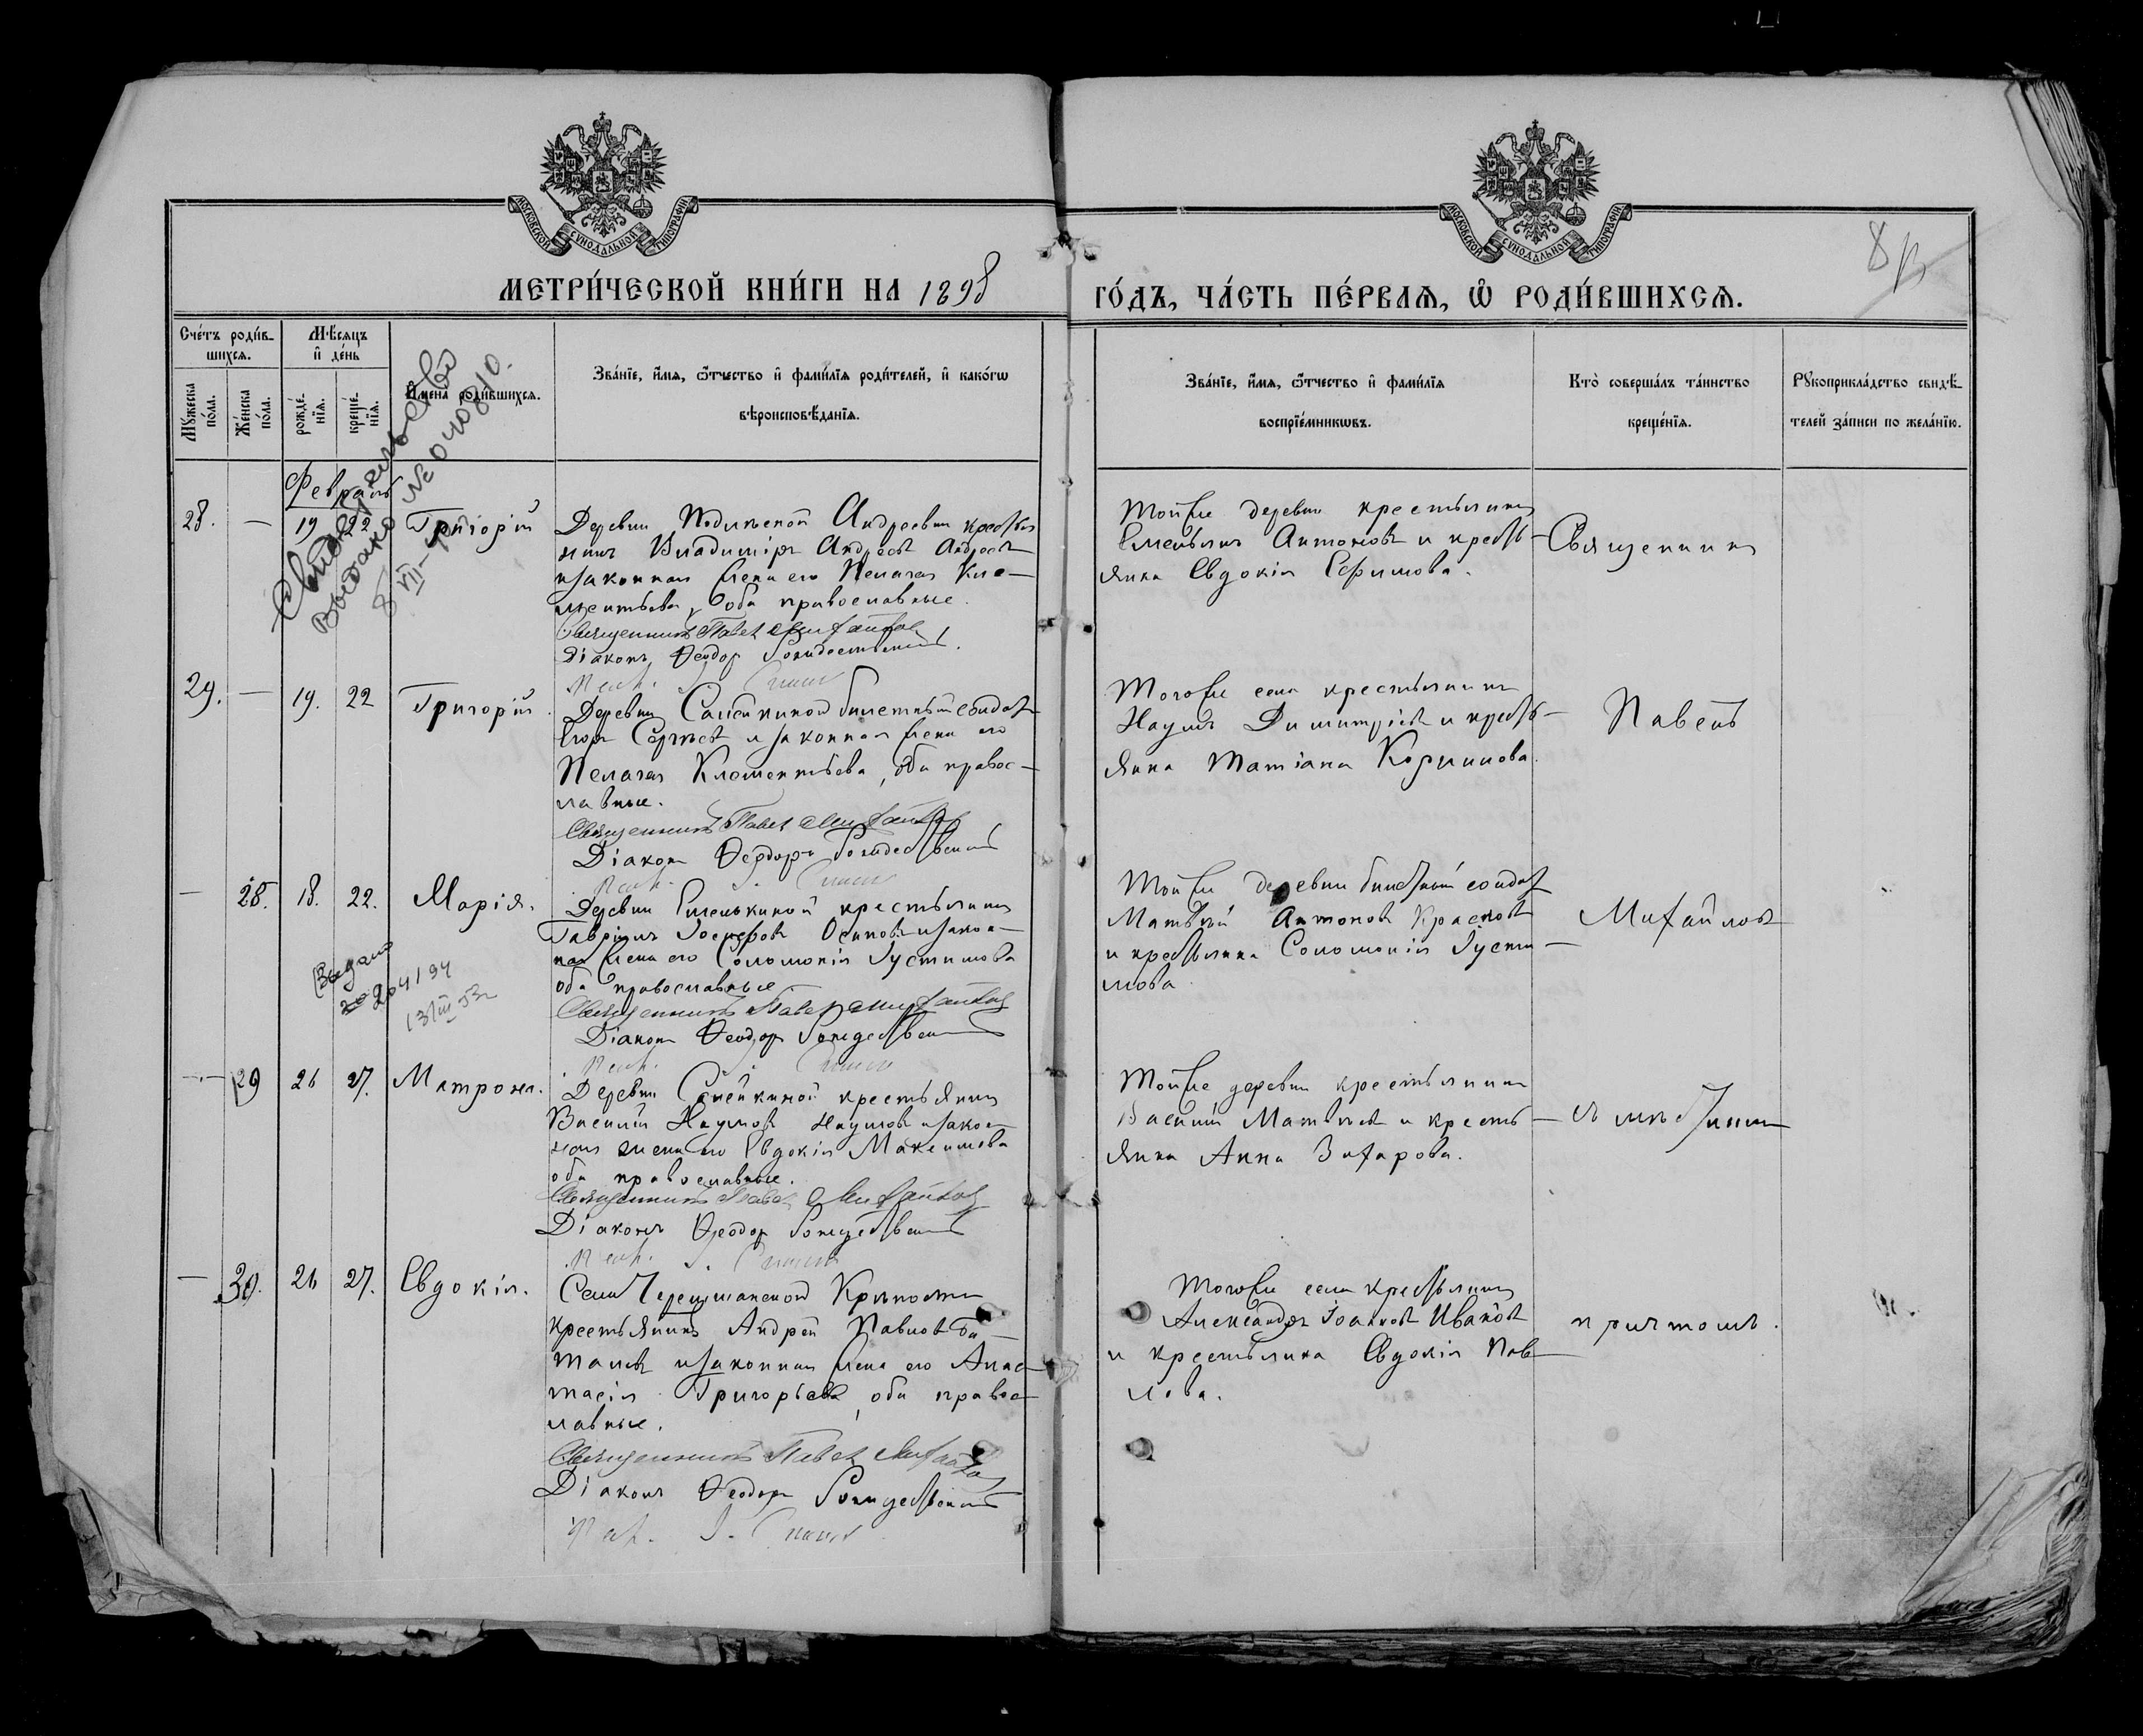 МОСКОВСКОЙ СУНОДАЛЬНОЙ ТИПОГРАФІИ
МОСКОВСКОЙ СУНОДАЛЬНОЙ ТИПОГРАФІИ
МЕТРИ́ЧЕСКОЙ КНИ́ГИ НА 1898
ГО́ДЪ, ЧА́СТЬ ПЕ́РВАѦ, Ѡ҆ РОДИ́ВШИХСѦ.
Сче́тъ роди́в-
шихсѧ.
Мꙋ́жеска по́ла.
Же́нска по́ла.
Мѣ́сѧцъ
и҆ де́нь
рожде́-нїѧ.
креще́-нїѧ.
И҆мена̀ роди́вшихсѧ.
Зва́нїе, и҆́мѧ, ѻ҆́тчество и҆ фами́лїѧ роди́телей, и҆ како́гѡ
вѣроисповѣ́данїѧ.
Зва́нїе, и҆́мѧ, ѻ҆́тчество и҆ фами́лїѧ
воспрїе́мникѡвъ.
Кто̀ соверша́лъ та́инство
креще́нїѧ.
Рꙋкоприкла́дство свидѣ́-
телей за́писи по жела́нїю.
Свидетельство
выдано № 040810.
Февраль
28. — 19 22 Григорій
Деревни Андреевки крестья
нинъ Владиміръ Андреевъ Андреевъ
и законная жена его Пелагея Кле-
ментьева, оба православные.
Священникъ Павелъ Михайловъ
Діаконъ Ѳеодоръ Рождественскій.
Тойже деревни крестьянинъ
Емельянъ Антоновъ и кресть-
янка Евдокія Ефимова.
Священникъ
29. — 19. 22 Григорій
Деревни Самейкиной билетный солдатъ
Егоръ Сергѣевъ и законная жена его
Пелагея Клементьева, оба правос-
лавные.
Священникъ Павелъ Михайловъ
Діаконъ Ѳеодоръ Рождественскій
Тогоже села крестьянинъ
Наумъ Димитріевъ и кресть-
янка Татіана Корнилова.
Павелъ
— 28. 18. 22. Марія.
Деревни Емелькиной крестьянинъ
Гавріилъ Іосифовъ Осиповъ и закон-
ная жена его Соломонія Іустинова
оба православные
Священникъ Павелъ Михайловъ
Діаконъ Ѳеодоръ Рождественскій
Тойже деревни билетный солдатъ
Матвѣй Антоновъ Красновъ
и крестьянка Соломонія Іусти-
нова
Михайловъ
204194
13/III 53г
— 29 26 27. Матрона.
Деревни Самейкиной крестьянинъ
Василій Наумовъ Наумовъ и закон-
ная жена его Евдокія Максимова
оба православные.
Священникъ Павелъ Михайловъ
Діаконъ Ѳеодоръ Рождественскій
Тойже деревни крестьянинъ
Василій Матвѣевъ и кресть-
янка Анна Захарова.
съ мѣстнымъ
— 30. 26 27. Евдокія.
Села Черемшанской Крѣпости
крестьянинъ Андрей Павловъ
и законная жена его Анас-
тасія Григорьева, оба правос-
лавные.
Священникъ Павелъ Михайловъ
Діаконъ Ѳеодоръ Рождественскій
Тогоже села крестьянинъ
Александръ Іоанновъ Ивановъ
и крестьянка Евдокія Пав-
лова.
причтомъ.